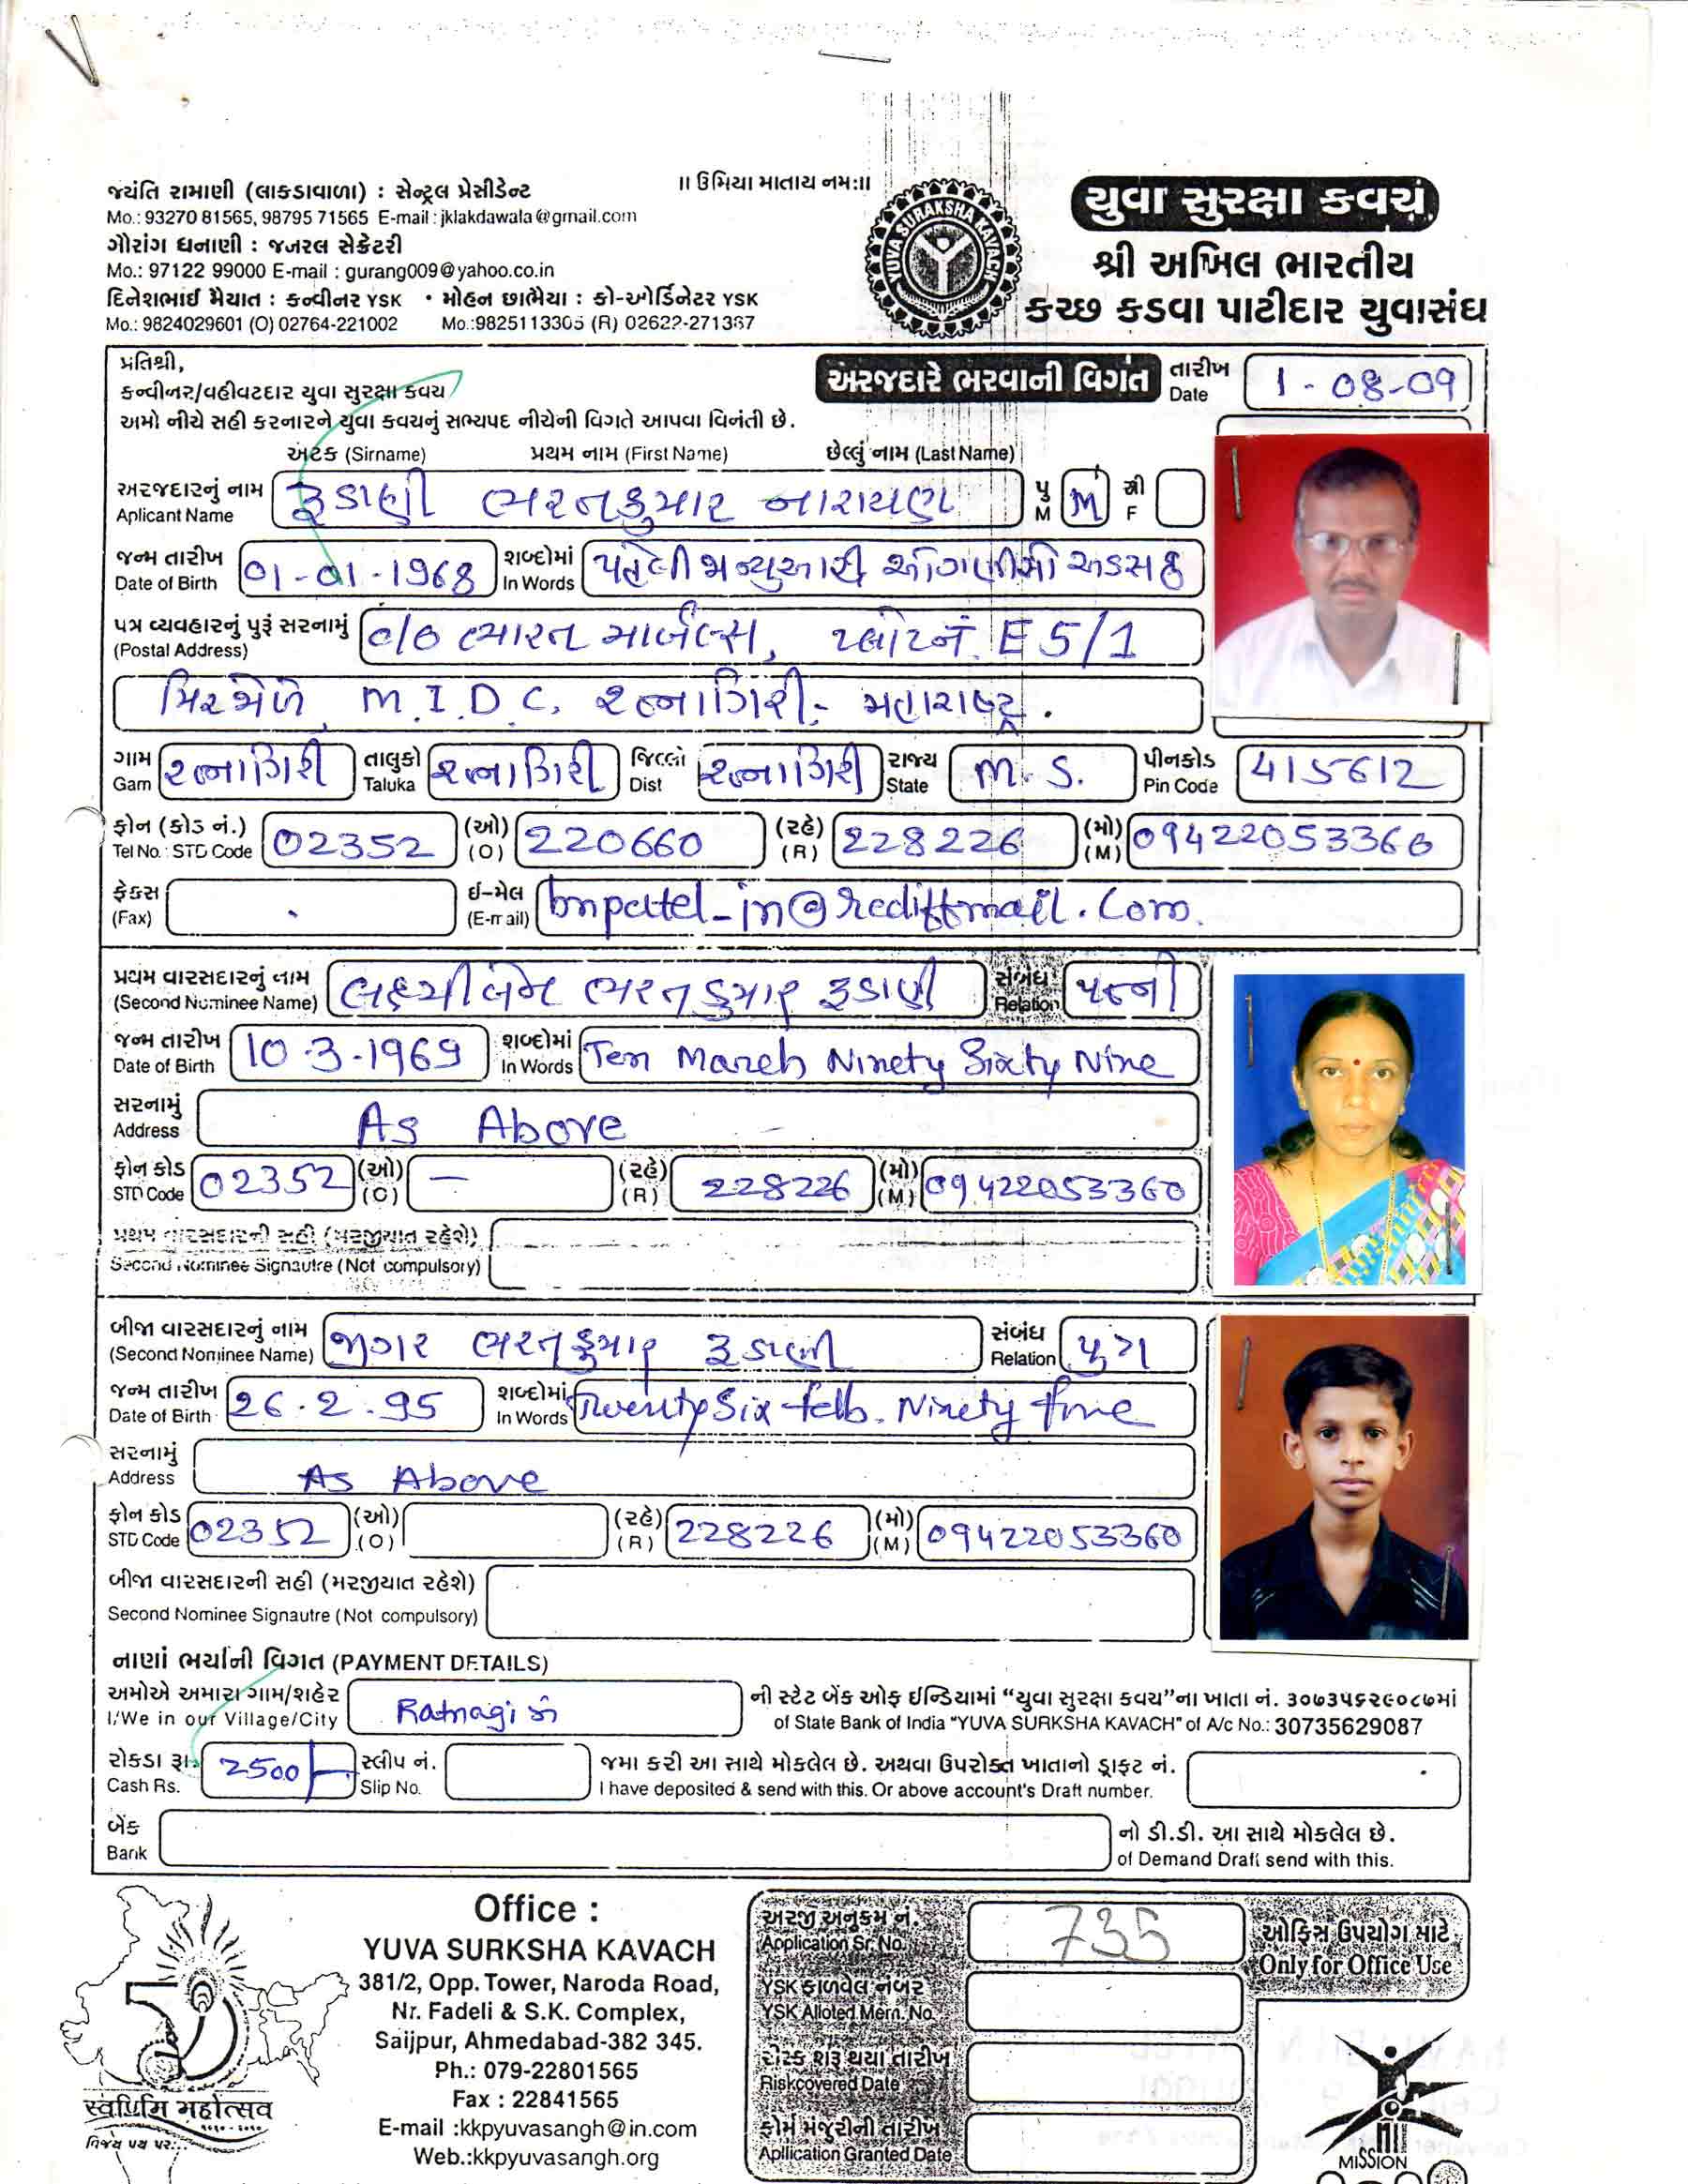 ॥ ઉમિયા માતાય નમઃ॥
જયંતિ રામાણી (લાકડાવાળા) : સેન્ટ્રલ પ્રેસીડેન્ટ
Mo.: 93270 81565, 98795 71565 E-mail : jklakdawala@gmail.com
ગૌરાંગ ધનાણી : જનરલ સેક્રેટરી
Mo.: 97122 99000 E-mail : gurang009@yahoo.co.in
દિનેશભાઈ મૈયાત : કન્વીનર YSK • મોહન છાભૈયા : કો-ઓર્ડિનેટર YSK
Mo.: 9824029601 (O) 02764-221002 Mo.:9825113305 (R) 02622-271367
YUVA SURAKSHA KAVACH
યુવા સુરક્ષા કવચ
શ્રી અખિલ ભારતીય
કચ્છ કડવા પાટીદાર યુવાસંઘ
પ્રતિશ્રી,
કન્વીનર/વહીવટદાર યુવા સુરક્ષા કવચ
અમો નીચે સહી કરનારને યુવા કવચનું સભ્યપદ નીચેની વિગતે આપવા વિનંતી છે.
અરજદારે ભરવાની વિગત
તારીખ Date 1-08-09
અટક (Sirname) પ્રથમ નામ (First Name) છેલ્લું નામ (Last Name)
અરજદારનું નામ Aplicant Name રૂડાણી ભરતકુમાર નારાયણ પુ M M સ્ત્રી F
જન્મ તારીખ Date of Birth 01-01-1968 શબ્દોમાં In Words પહેલી જાન્યુઆરી ઓગણીસો અડસઠ
પત્ર વ્યવહારનું પુરૂં સરનામું (Postal Address) c/o ભારત માર્બલ્સ, પ્લોટ નં. E 5/1
મિરજોળે, M.I.D.C. રત્નાગિરી- મહારાષ્ટ્ર.
ગામ Gam રત્નાગિરી તાલુકો Taluka રત્નાગિરી જિલ્લો Dist રત્નાગિરી રાજ્ય State M.S. પીનકોડ Pin Code 415612
ફોન (કોડ નં.) Tel No.: STD Code 02352 (ઓ) (O) 220660 (રહે) (R) 228226 (મો) (M) 09422053360
ફેકસ (Fax) ઈ-મેલ (E-mail) bnpatel_in@rediffmail.com.
પ્રથમ વારસદારનું નામ (Second Nominee Name) લક્ષ્મીબેન ભરતકુમાર રૂડાણી સંબંધ Relation પત્ની
જન્મ તારીખ Date of Birth 10-3-1969 શબ્દોમાં In Words Ten March Ninety Sixty Nine
સરનામું Address As Above
ફોન કોડ STD Code 02352 (ઓ) (O) — (રહે) (R) 228226 (મો) (M) 09422053360
પ્રથમ વારસદારની સહી (મરજીયાત રહેશે)
Second Nominee Signautre (Not compulsory)
બીજા વારસદારનું નામ (Second Nominee Name) જીગર ભરતકુમાર રૂડાણી સંબંધ Relation પુત્ર
જન્મ તારીખ Date of Birth 26.2.95 શબ્દોમાં In Words Twenty Six feb. Ninety five
સરનામું Address As Above
ફોન કોડ STD Code 02352 (ઓ) (O) (રહે) (R) 228226 (મો) (M) 09422053360
બીજા વારસદારની સહી (મરજીયાત રહેશે)
Second Nominee Signautre (Not compulsory)
નાણાં ભર્યાની વિગત (PAYMENT DETAILS)
અમોએ અમારા ગામ/શહેર Ratnagiri ની સ્ટેટ બેંક ઓફ ઈન્ડિયામાં “યુવા સુરક્ષા કવચ”ના ખાતા નં. ૩૦૭૩૫૬૨૯૦૮૭માં
I/We in our Village/City of State Bank of India "YUVA SURKSHA KAVACH" of A/c No.: 30735629087
રોકડા રૂા. 2500/- સ્લીપ નં. જમા કરી આ સાથે મોકલેલ છે. અથવા ઉપરોક્ત ખાતાનો ડ્રાફ્ટ નં.
Cash Rs. Slip No. I have deposited & send with this. Or above account's Draft number.
બેંક નો ડી.ડી. આ સાથે મોકલેલ છે.
Bank of Demand Draft send with this.
સ્વર્ણિમ મહોત્સવ
Office :
YUVA SURKSHA KAVACH
381/2, Opp. Tower, Naroda Road,
Nr. Fadeli & S.K. Complex,
Saijpur, Ahmedabad-382 345.
Ph.: 079-22801565
Fax : 22841565
E-mail :kkpyuvasangh@in.com
Web.:kkpyuvasangh.org
અરજી અનુક્રમ નં. Application Sr. No. 735
YSK ફાળવેલ નંબર YSK Alloted Mem. No.
રોટક શરૂ થયા તારીખ Riskcovered Date
ફોર્મ મંજુરીની તારીખ Apllication Granted Date
ઓફિસ ઉપયોગ માટે
Only for Office Use
MISSION